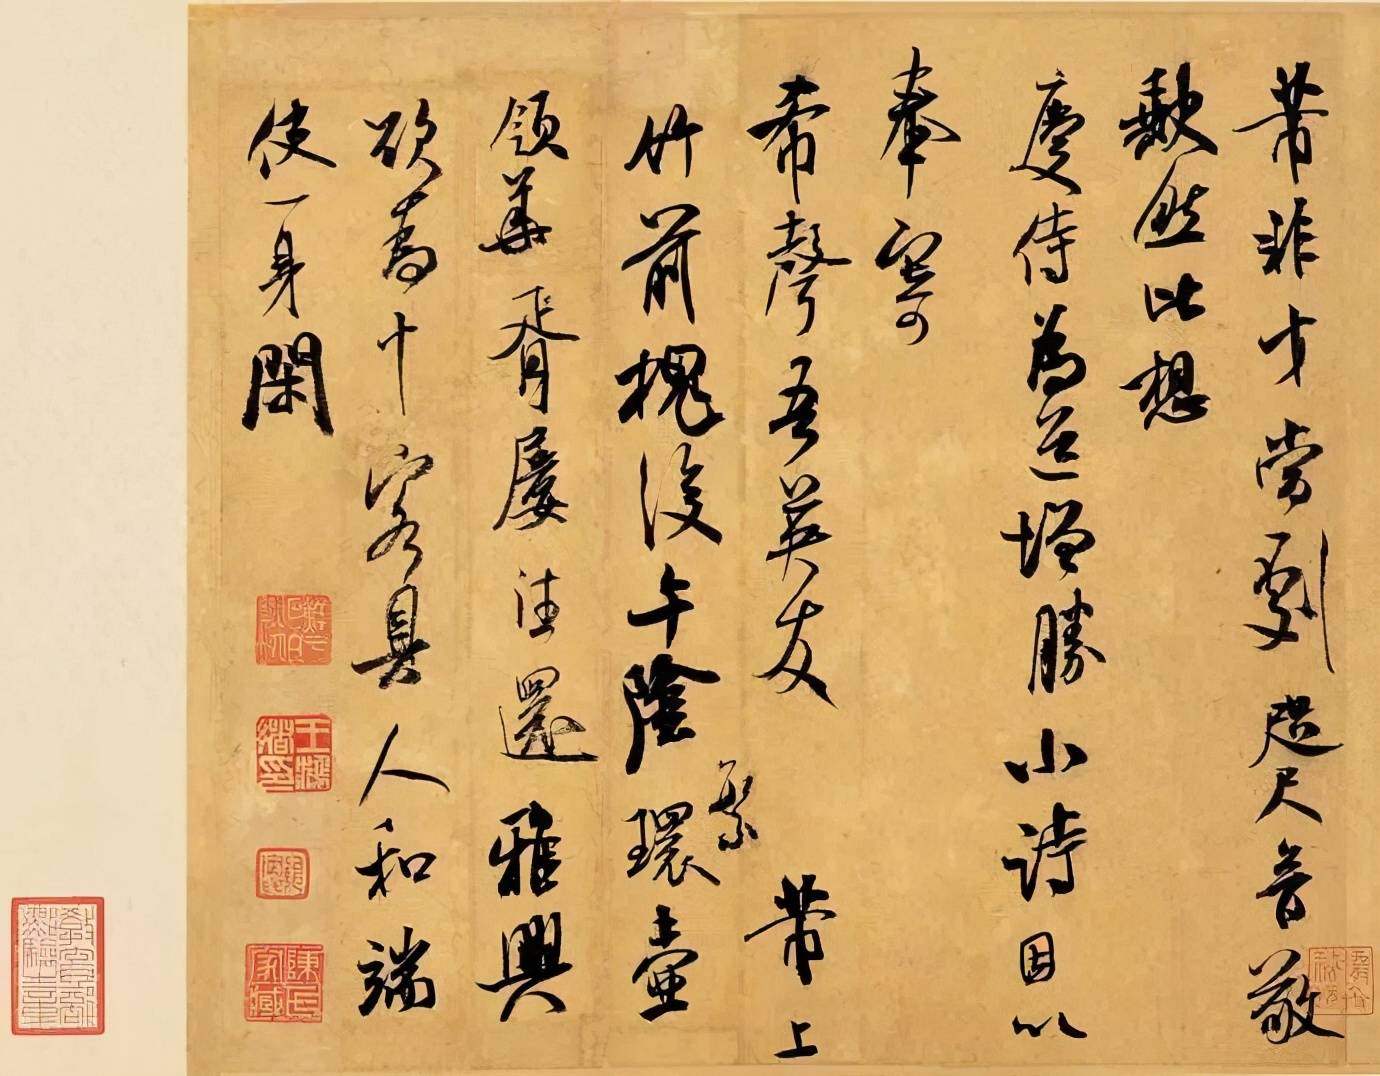 芾非才當劇咫尺音敬
缺然比想
慶侍為道增勝小詩因以
奉寄
希聲吾英友 芾上
繁
竹前槐後午陰環壺
領華胥屢往還雅興
欲為十客具人和端
使一身閑